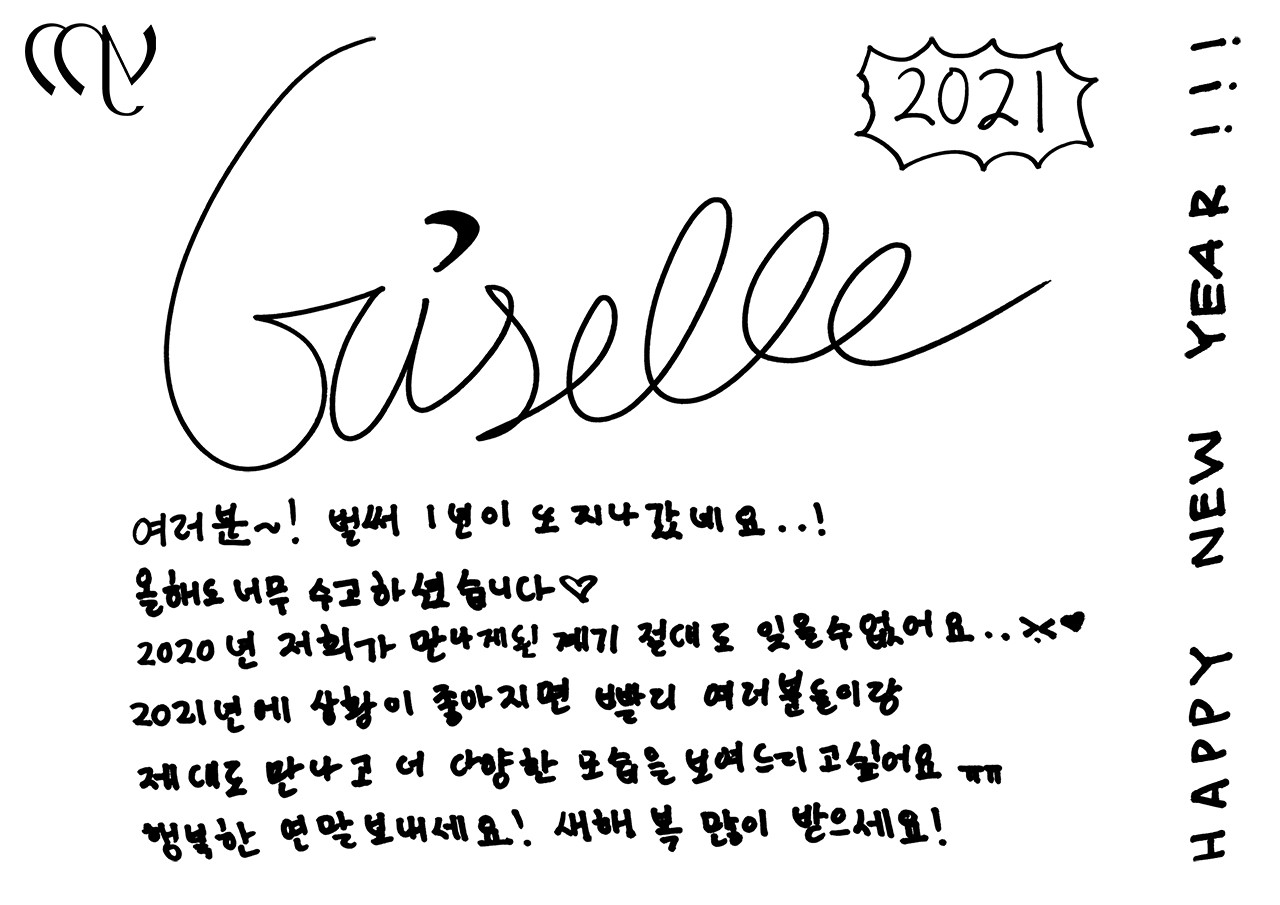 2021
Giselle
여러분~! 벌써 1년이 또 지나갔네요..!
올해도 너무 수고하셨습니다♡
2020년 저희가 만나게된 계기 절대도 잊을수없어요..※♥
2021년에 상황이 좋아지면 빨리 여러분들이랑
제대로 만나고 더 다양한 모습을 보여드리고싶어요 ㅠㅠ
행복한 연말보내세요! 새해 복 많이 받으세요!
HAPPY NEW YEAR !!!